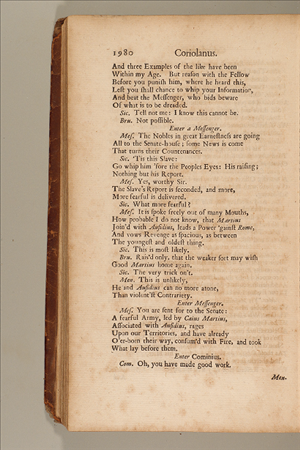 1980 Coriolanus.
And three Examples of the like have been
Within my Age. But reason with the Fellow
Before you punish him, where he heard this,
Lest you shall chance to whip your Information,
And beat the Messenger, who bids beware
Of what is to be dreaded.
Sic. Tell not me: I know this cannot be.
Bru. Not possible.
Enter a Messenger.
Mes. The Nobles in great Earnestness are going
All to the Senate-house; some News is come
That turns their Countenances.
Sic. 'Tis this Slave:
Go whip him 'fore the Peoples Eyes: His raising;
Nothing but his Report.
Mes. Yes, worthy Sir.
The Slave's Report is seconded, and more,
More fearful is delivered.
Sic. What more fearful?
Mes. It is spoke freely out of many Mouths,
How probable I do not know, that Martius
Join'd with Aufidius, leads a Power 'gainst Rome,
And vows Revenge as spacious, as between
The youngest and oldest thing.
Sic. This is most likely.
Bru. Rais'd only, that the weaker sort may wish
Good Martius home again.
Sic. The very trick on't.
Men. This is unlikely,
He and Aufidius can no more atone,
Than violent'st Contrariety.
Enter Messenger.
Mes. You are sent for to the Senate:
A fearful Army, led by Caius Martius,
Associated with Aufidius, rages
Upon our Territories, and have already
O'er-born their way, consum'd with Fire, and took
What lay before them.
Enter Cominius.
Com. Oh, you have made good work.
Men.